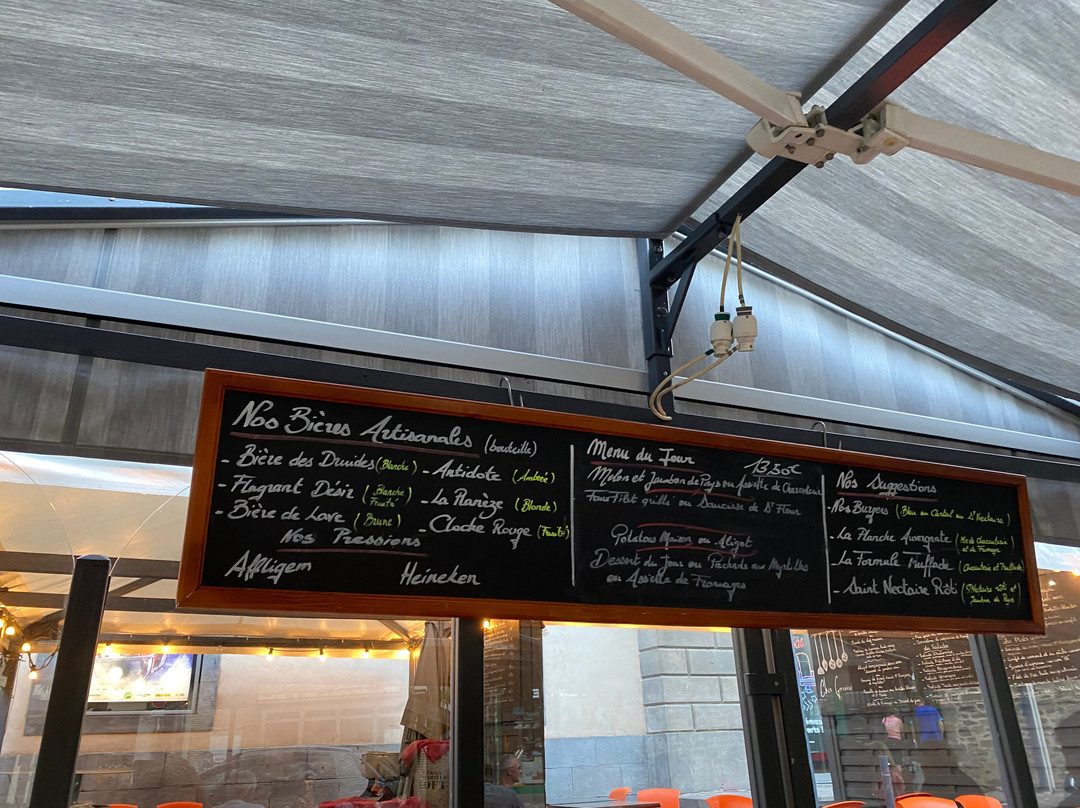 Nos Bières Artisanales (bouteille)
- Bière des Druides (Blanche)
- Flagrant Désir (Blanche Fruité)
- Bière de Lave (Brune)
- Antidote (Ambrée)
- La Planèze (Blonde)
- Cloche Rouge (Fruité)
Nos Pressions
Affligem Heineken
Menu du Jour 13.50€
Melon et Jambon de Pays ou Assiette de Charcuterie
Faux Filet grillé ou Saucisse de St Flour
Potatoes Maison ou Aligot
Dessert du Jour ou Pachade aux Myrtilles
ou Assiette de Fromages
Nos Suggestions
- Nos Burgers (Bleu ou Cantal ou St Nectaire)
- La Planche Auvergnate (Mix de Charcuterie
et de Fromage)
- La Formule Truffade (Charcuterie et Truffade)
- Saint Nectaire Rôti (St Nectaire rôti et
Jambon de Pays)
Chez